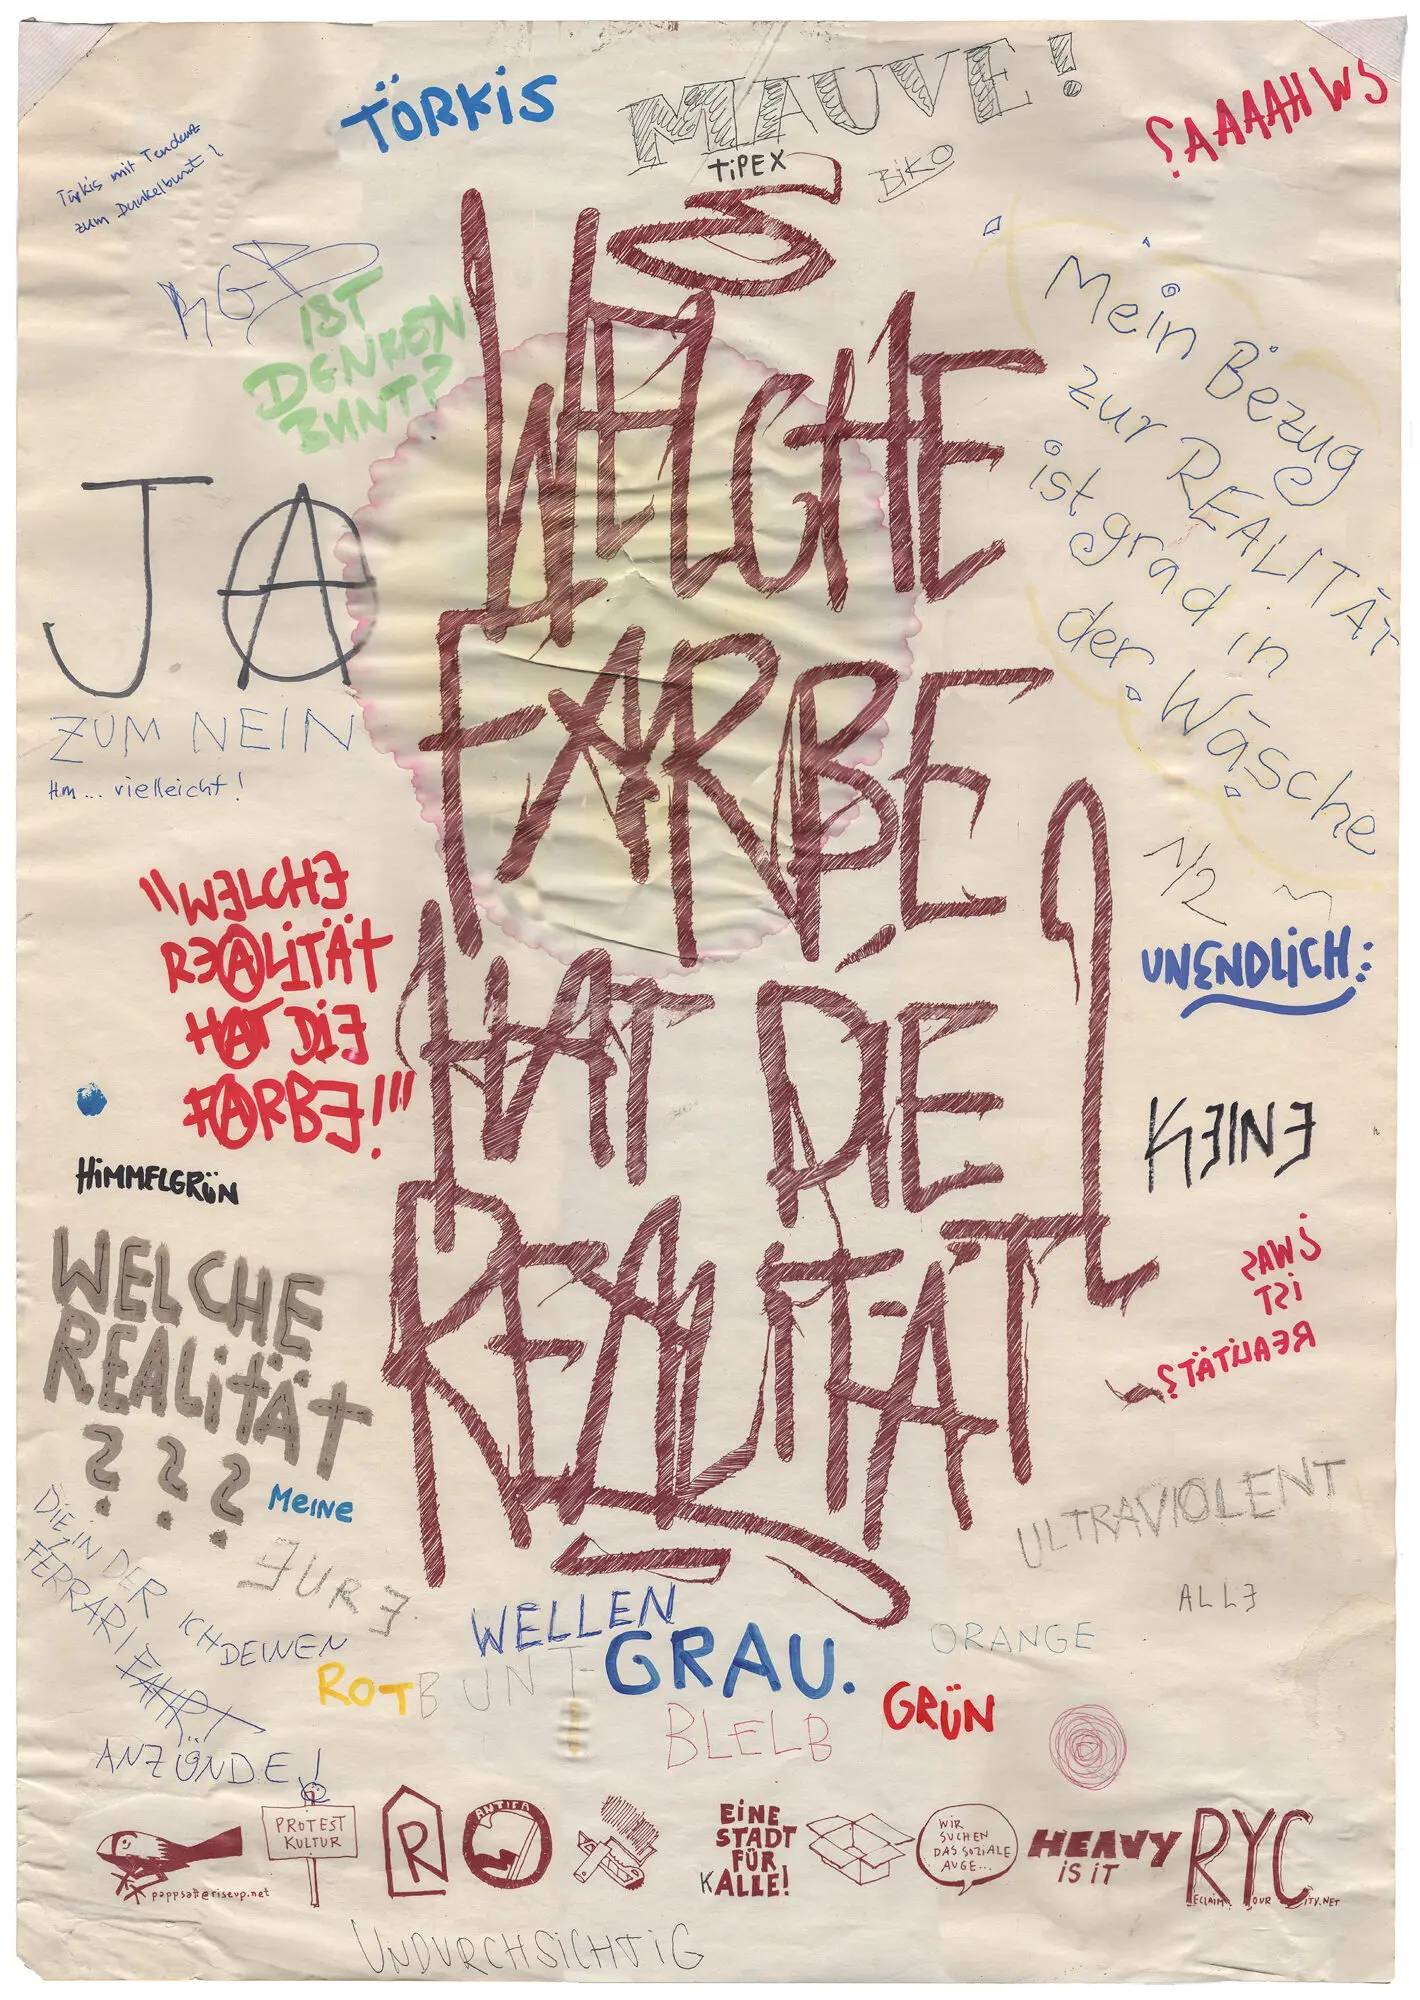 TÖRKIS
MAUVE!
TiPEX
BIKO
SWHAAAA?
Türkis mit Tendenz
zum Dunkelbunt!
RGB
IST
DENKEN
BUNT?
WELCHE
FARBE
HAT DIE
REALITÄT?
Mein Bezug
zur REALITÄT
ist grad in
der Wäsche
JA
ZUM NEIN
Hm... vielleicht!
1/2
UNENDLiCH:
"WELCHE
REALiTÄT
HAT DiE
FARBE!"
KEINE
HiMMELGRÜN
WELCHE
REALiTÄT
? ? ?
SWAS
iST
REALITÄT?
MEINE
EURE
DIE IN DER
FERRARI FAHRT
ICH DEINEN
ANZÜNDE!
ULTRAVIOLENT
ALLE
WELLEN
GRAU.
ORANGE
ROT
BUNT
GRÜN
BLELB
pappsatt@riseup.net
PROTEST
KULTUR
R
ANTIFA
EiNE
STADT
FÜR
KALLE!
WIR
SUCHEN
DAS SOZIALE
AUGE...
HEAVY
iS iT
RYC
ECLAIM OUR CITY.NET
UNDURCHSICHTiG